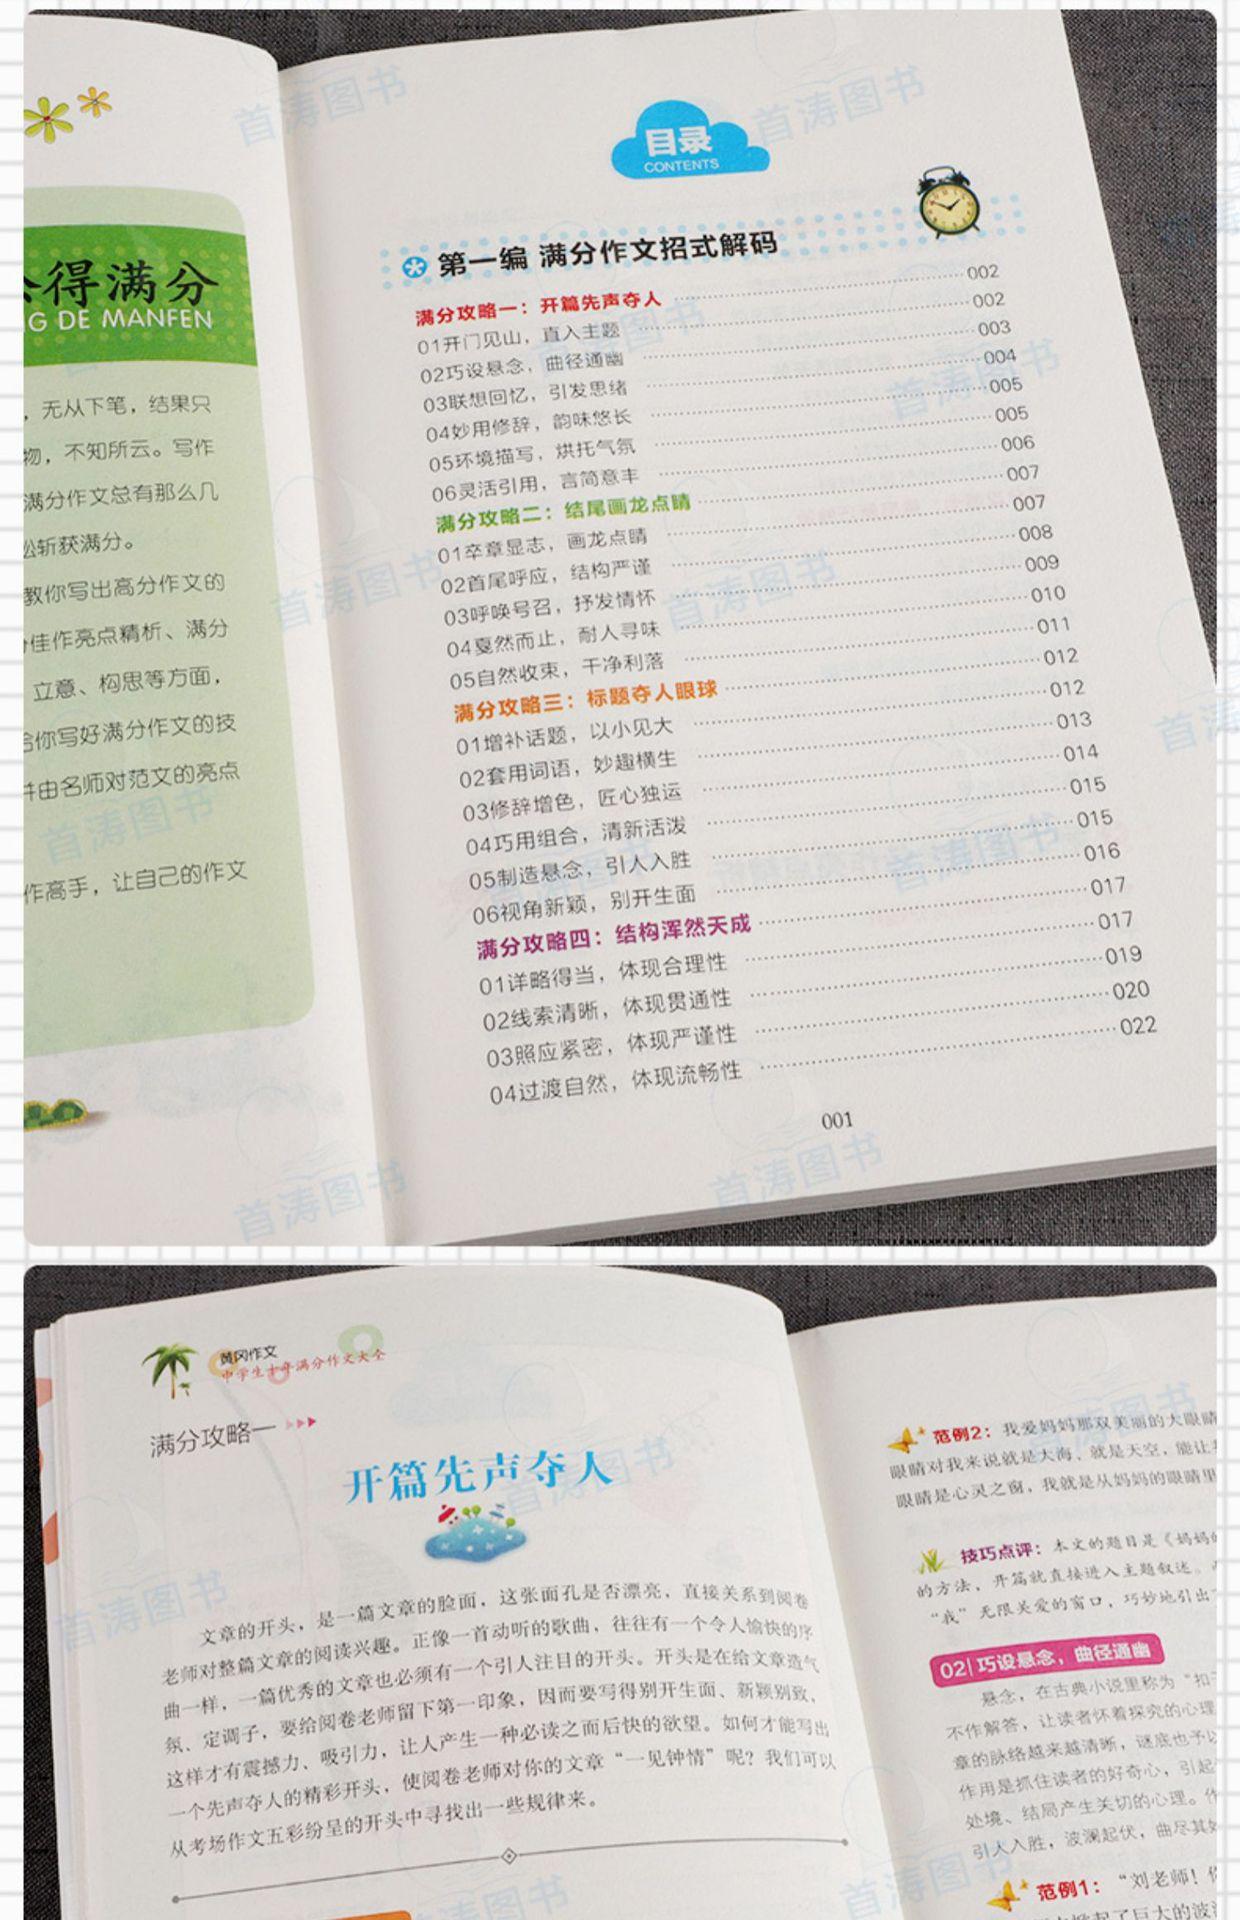 会得满分
G DE MANFEN
，无从下笔，结果只
物，不知所云。写作
满分作文总有那么几
松斩获满分。
教你写出高分作文的
佳作亮点精析、满分
立意、构思等方面，
给你写好满分作文的技
并由名师对范文的亮点
作高手，让自己的作文
目录
CONTENTS
第一编 满分作文招式解码
满分攻略一：开篇先声夺人 002
01开门见山，直入主题 002
02巧设悬念，曲径通幽 003
03联想回忆，引发思绪 004
04妙用修辞，韵味悠长 005
05环境描写，烘托气氛 005
06灵活引用，言简意丰 006
满分攻略二：结尾画龙点睛 007
01卒章显志，画龙点睛 007
02首尾呼应，结构严谨 008
03呼唤号召，抒发情怀 009
04戛然而止，耐人寻味 010
05自然收束，干净利落 011
满分攻略三：标题夺人眼球 012
01增补话题，以小见大 012
02套用词语，妙趣横生 013
03修辞增色，匠心独运 014
04巧用组合，清新活泼 015
05制造悬念，引人入胜 015
06视角新颖，别开生面 016
满分攻略四：结构浑然天成 017
01详略得当，体现合理性 017
02线索清晰，体现贯通性 019
03照应紧密，体现严谨性 020
04过渡自然，体现流畅性 022
001
黄冈作文
中学生十年满分作文大全
满分攻略一
开篇先声夺人
文章的开头，是一篇文章的脸面，这张面孔是否漂亮，直接关系到阅卷
老师对整篇文章的阅读兴趣。正像一首动听的歌曲，往往有一个令人愉快的序
曲一样，一篇优秀的文章也必须有一个引人注目的开头。开头是在给文章造气
氛、定调子，要给阅卷老师留下第一印象，因而要写得别开生面、新颖别致，
这样才有震撼力、吸引力，让人产生一种必读之而后快的欲望。如何才能写出
一个先声夺人的精彩开头，使阅卷老师对你的文章“一见钟情”呢？我们可以
从考场作文五彩纷呈的开头中寻找出一些规律来。
范例2：我爱妈妈那双美丽的大眼睛
眼睛对我来说就是大海、就是天空，能让
眼睛是心灵之窗，我就是从妈妈的眼睛里
技巧点评：本文的题目是《妈妈的
的方法，开篇就直接进入主题叙述。
“我”无限关爱的窗口，巧妙地引出
02|巧设悬念，曲径通幽
悬念，在古典小说里称为“扣子
不作解答，让读者怀着探究的心理
章的脉络越来越清晰，谜底也予以
作用是抓住读者的好奇心，引起
处境、结局产生关切的心理。作
引人入胜，波澜起伏，曲尽其妙
范例1：“刘老师！你
掀起了巨大的波
首涛图书